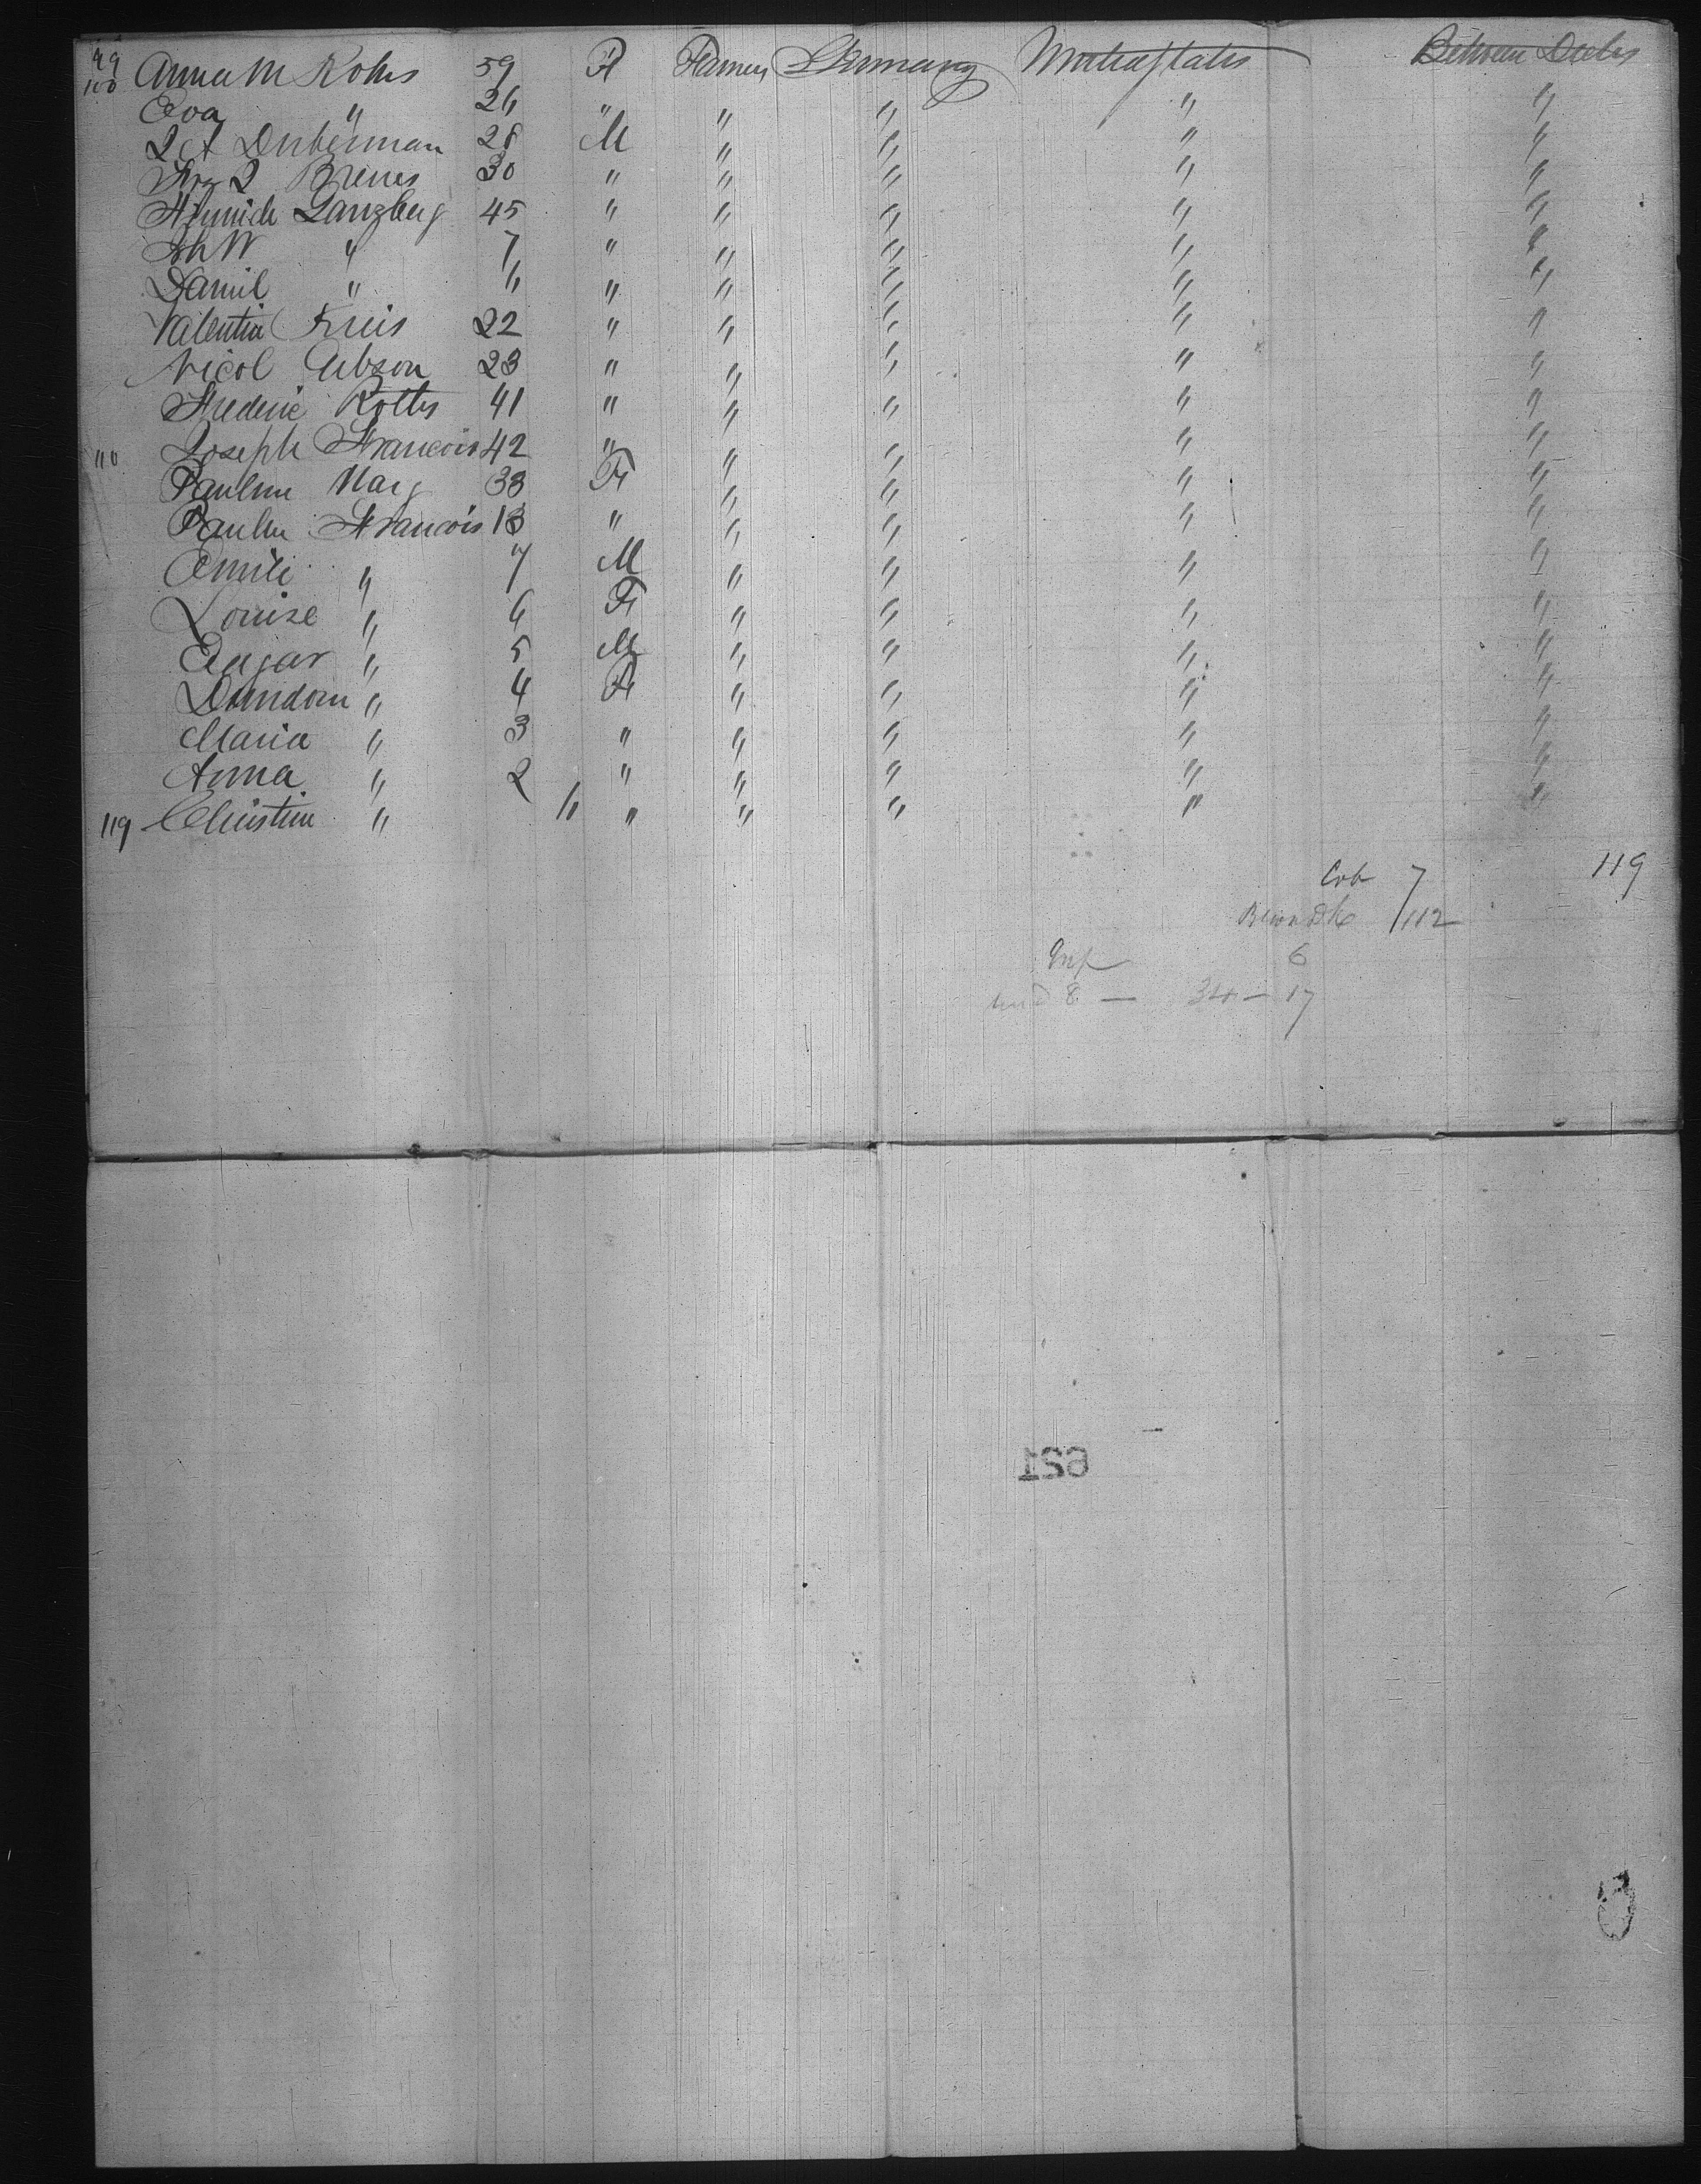 99 Anna M Rohrs 59 F Farmer Germany United States Between Decks
100 Eva " 26 " " " " "
Dubberman 28 M " " " "
Brenes 30 " " " " "
Heinrich Lanzberg 45 " " " " "
Joh W " 7 " " " " "
Daniel " 6 " " " " "
Valentin Kreis 22 " " " " "
Nicol Gibson 23 " " " " "
Frederic Rotts 41 " " " " "
110 Joseph Francois 42 " " " " "
Pauline Marg 33 F " " " "
Pauline Francois 13 " " " " "
Emile " 7 M " " " "
Louise " 6 F " " " "
" 5 M " " " "
" 4 F " " " "
Maria " 3 " " " " "
Anna " 2 " " " " "
119 Christine " 11 " " " " "
119
Cab 7
112
Inf 6
und 8 — 34 — 17
129